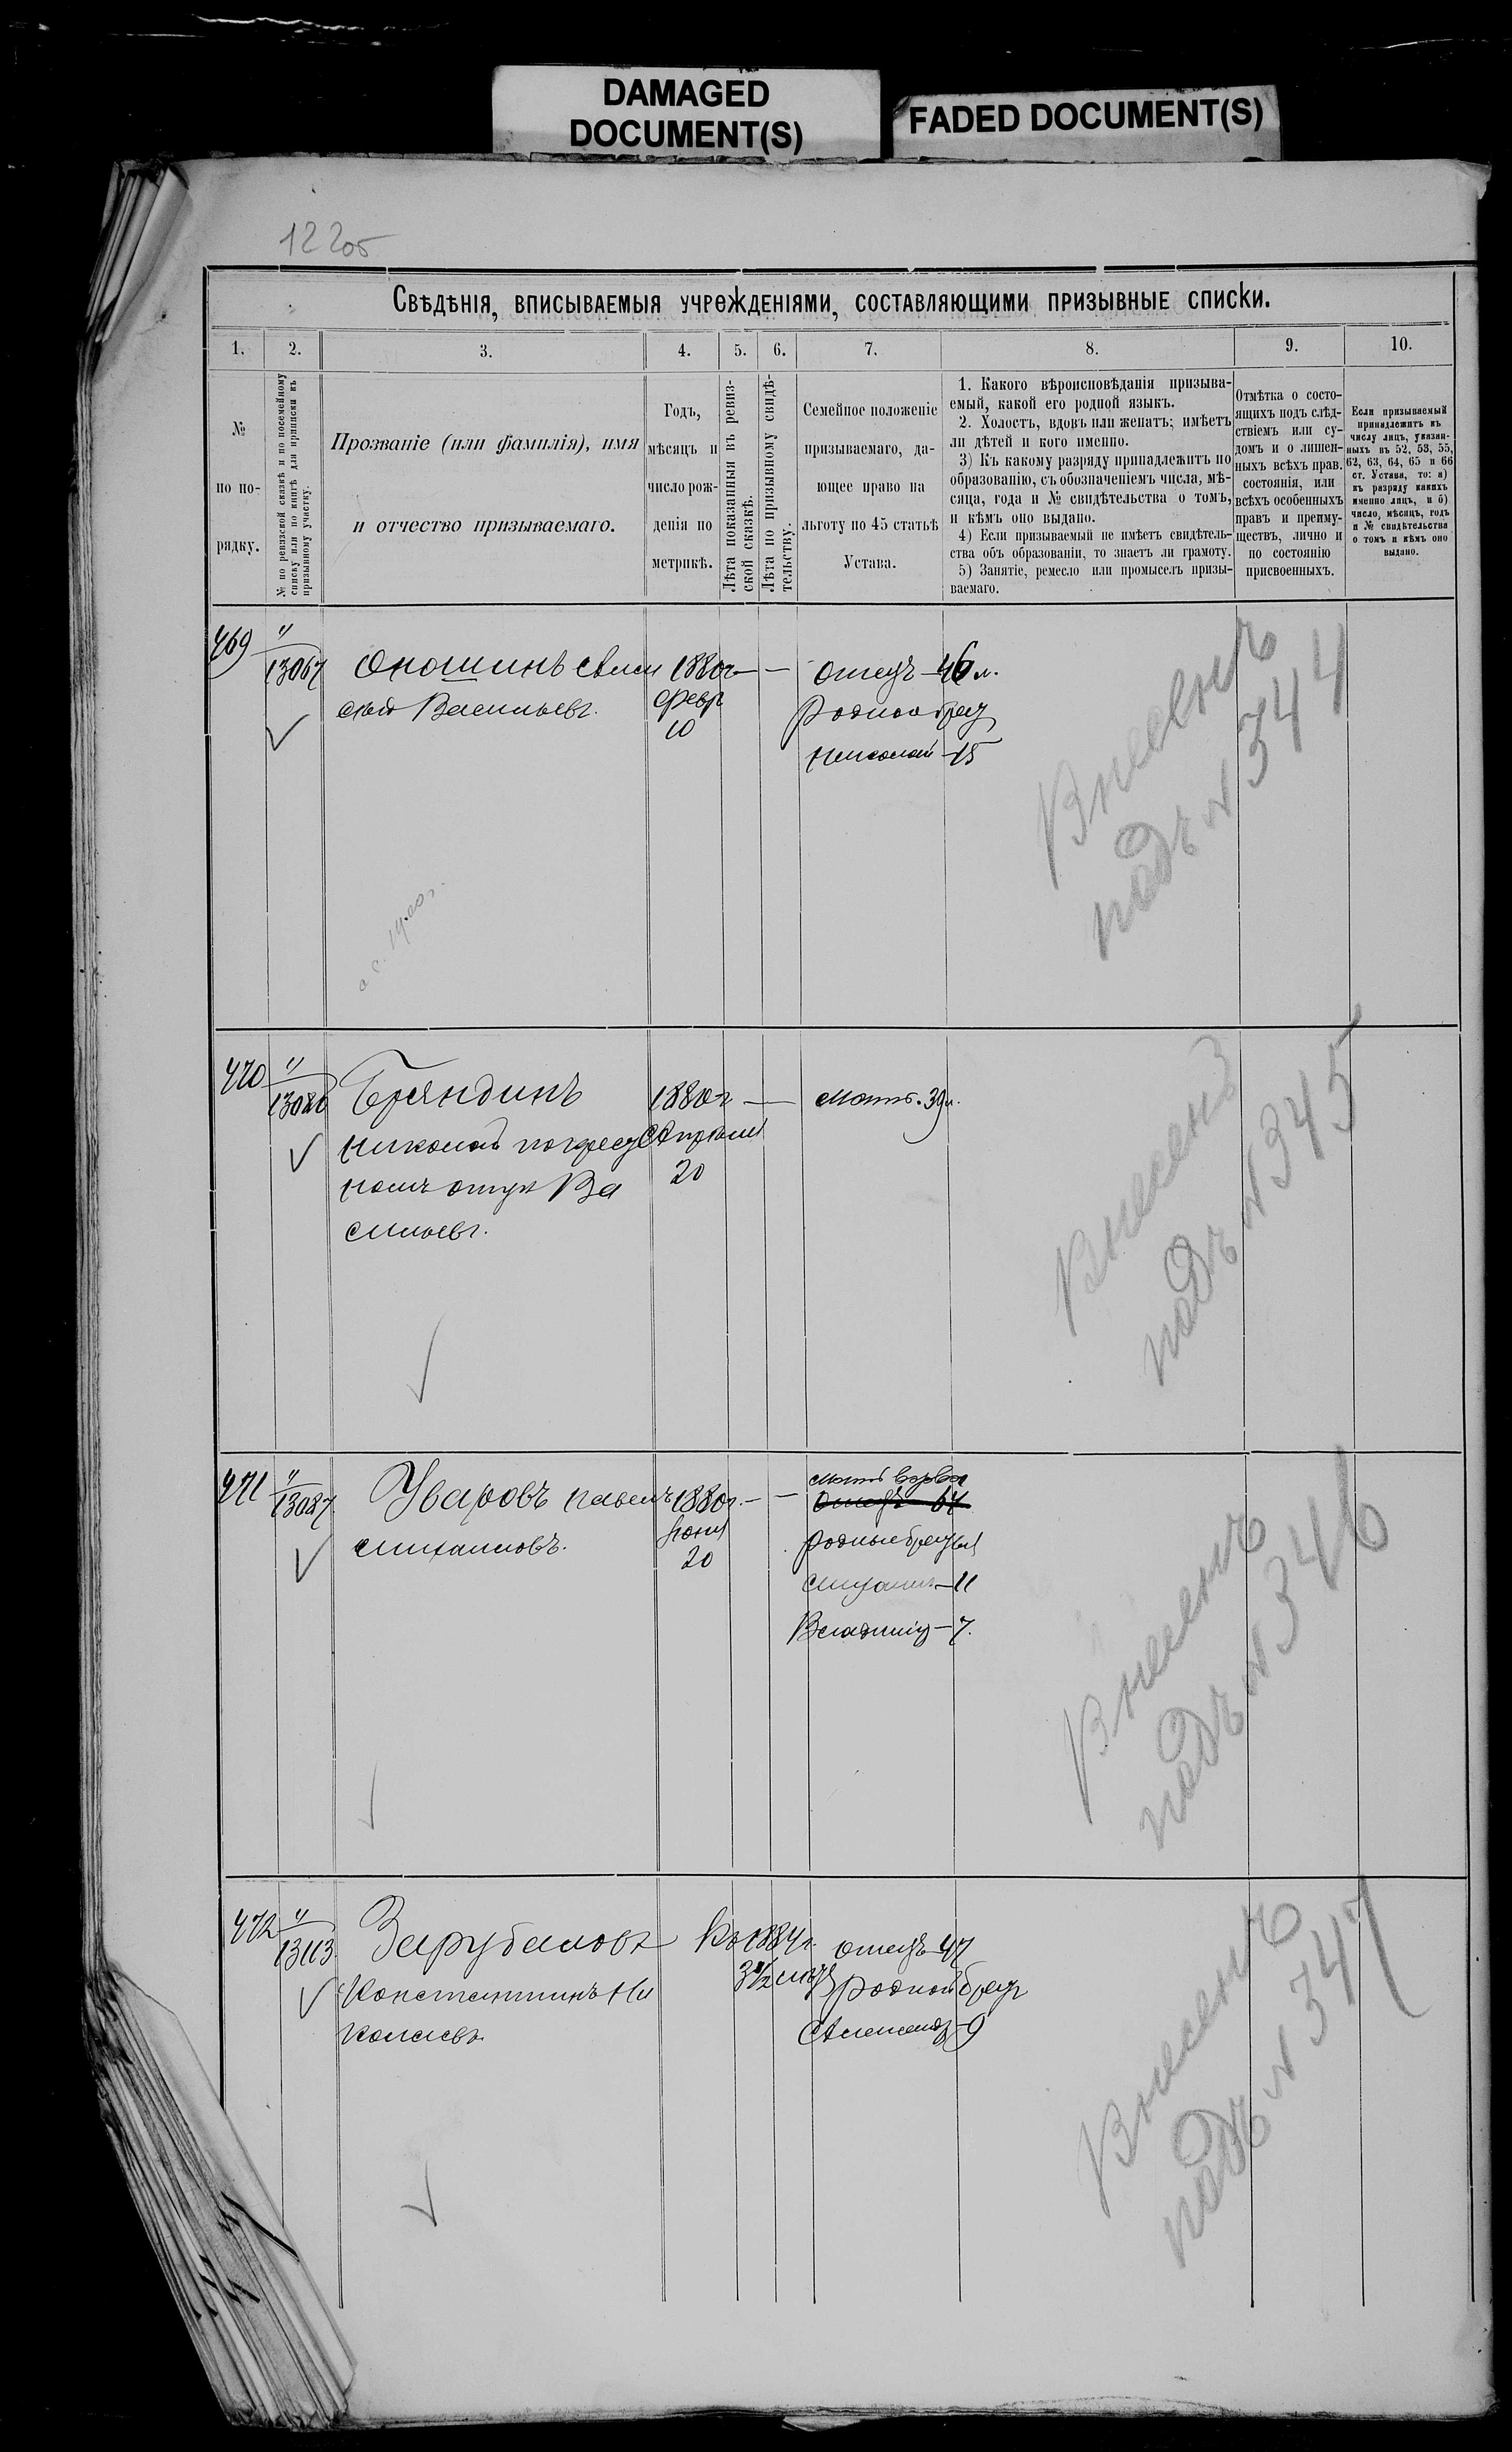 DAMAGED
DOCUMENT(S)
FADED DOCUMENT(S)
122об
Свѣдѣнія, вписываемыя учрежденіями, составляющими призывные списки.
1. 2. 3. 4. 5. 6. 7. 8. 9. 10.
№
по по-
рядку.
№ по ревизской сказкѣ и по посемейному
списку или по книгѣ для приписки къ
призывному участку.
Прозваніе (или фамилія), имя
и отчество призываемаго.
Годъ,
мѣсяцъ и
число рож-
денія по
метрикѣ.
Лѣта показанныя въ ревиз-
ской сказкѣ.
Лѣта по призывному свидѣ-
тельству.
Семейное положеніе
призываемаго, да-
ющее право на
льготу по 45 статьѣ
Устава.
1. Какого вѣроисповѣданія призыва-
емый, какой его родной языкъ.
2. Холостъ, вдовъ или женатъ; имѣетъ
ли дѣтей и кого именно.
3) Къ какому разряду принадлежитъ по
образованію, съ обозначеніемъ числа, мѣ-
сяца, года и № свидѣтельства о томъ,
и кѣмъ оно выдано.
4) Если призываемый не имѣетъ свидѣтель-
ства объ образованіи, то знаетъ ли грамоту.
5) Занятіе, ремесло или промыселъ призы-
ваемаго.
Отмѣтка о состо-
ящихъ подъ слѣд-
ствіемъ или су-
домъ и о лишен-
ныхъ всѣхъ прав.
состоянія, или
всѣхъ особенныхъ
правъ и преиму-
ществъ, лично и
по состоянію
присвоенныхъ.
Если призываемый
принадлежитъ къ
числу лицъ, указан-
ныхъ въ 52, 53, 55,
62, 63, 64, 65 и 66
ст. Устава, то: а)
къ разряду какихъ
именно лицъ, и б)
число, мѣсяцъ, годъ
и № свидѣтельства
о томъ и кѣмъ оно
выдано.
469 " 13067 Оношинъ Алек 1880г — — отецъ — 46 л.
сѣй Васильевъ. Февр Родной брат
10 Николай — 15
Внесенъ
подъ № 344
470 " 13086 Бряндинъ 1880г — — мать. 39 л.
Николай по крест Апрѣля
номъ отцѣ Ва 20
сильевъ.
Внесенъ
подъ № 345
471 " 13087 Уваровъ Павелъ 1880г. — — мать вдова
Отецъ 64
Михаиловъ. Іюня родные братья
20 Михаилъ — 11
Владимір — 7.
Внесенъ
подъ № 346
472 " 13113 Зарубаловъ Къ 1884г. отецъ 47
3 1/2 мѣс родной брат
Константинъ Ни
колаевъ Александ — 9
Внесенъ
подъ № 347